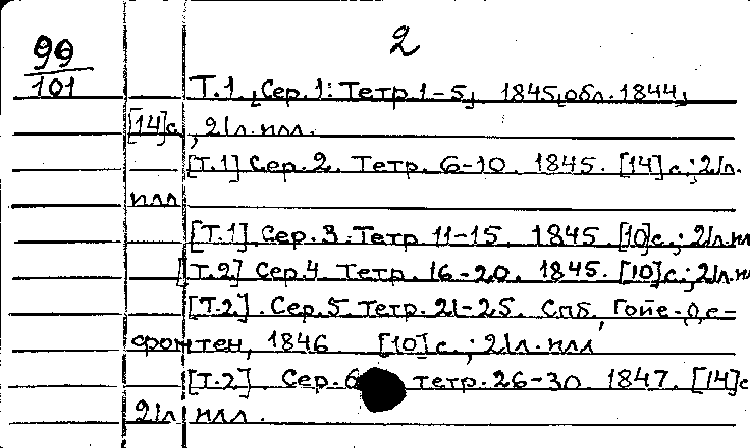 2
99
101
Т.1. [Сер. 1: Тетр. 1-5]. 1845, [обл. 1844],
[14] с., 21 л. илл.
[Т.1] Сер. 2. Тетр. 6-10. 1845. [14] с.; 21 л.
илл
[Т.1]. Сер. 3. Тетр 11-15. 1845. [10] с.; 21 л. ил
[Т.2] Сер. 4. Тетр. 16-20. 1845. [10] с.; 21 л. и
[Т.2]. Сер. 5. Тетр. 21-25. Спб, Гойе-Де-
сромтен, 1846 [10] с.; 21 л. илл
[Т.2]. Сер. 6 тетр. 26-30. 1847. [14] с
21 л илл.